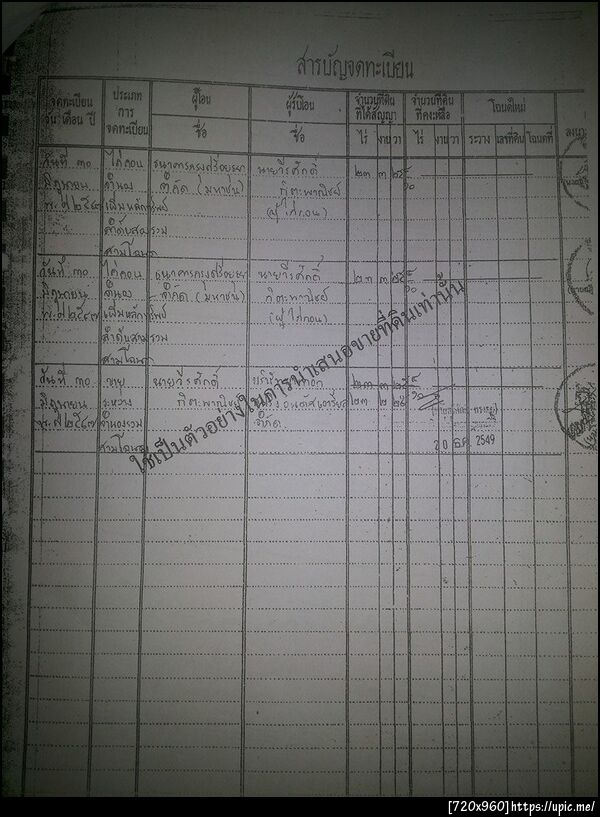 สารบัญจดทะเบียน
จดทะเบียน วัน เดือน ปี
ประเภทการจดทะเบียน
ผู้โอน
ชื่อ
ผู้รับโอน
ชื่อ
จำนวนที่ดินที่ได้สัญญา
ไร่ งาน วา
จำนวนที่ดินที่คงเหลือ
ไร่ งาน วา
โฉนดใหม่
ระวาง เลขที่ดิน โฉนดที่
วันที่ ๓๐ ไถ่ถอน ธนาคารกรุงศรีอยุธยา นายวีรศักดิ์ ๒๓ ๓
มิถุนายน จำนอง จำกัด (มหาชน)
พ.ศ. ๒๕๔๗ เพิ่มหลักทรัพย์ (ผู้ไถ่ถอน)
ลำดับสองรวม
สามโฉนด
วันที่ ๓๐ ไถ่ถอน ธนาคารกรุงศรีอยุธยา นายวีรศักดิ์ ๒๓ ๓
มิถุนายน จำนอง จำกัด (มหาชน)
พ.ศ. ๒๕๔๗ เพิ่มหลักทรัพย์ (ผู้ไถ่ถอน)
ลำดับสามรวม
สามโฉนด
วันที่ ๓๐ ขาย นายวีรศักดิ์ บริษัท
มิถุนายน ระหว่าง
พ.ศ. ๒๕๔๗ จำนองรวม จำกัด
สามโฉนด
20 ธ.ค. 2549
ใช้เป็นตัวอย่างในการนำเสนอขายที่ดินเท่านั้น
[720x960]https://upic.me/